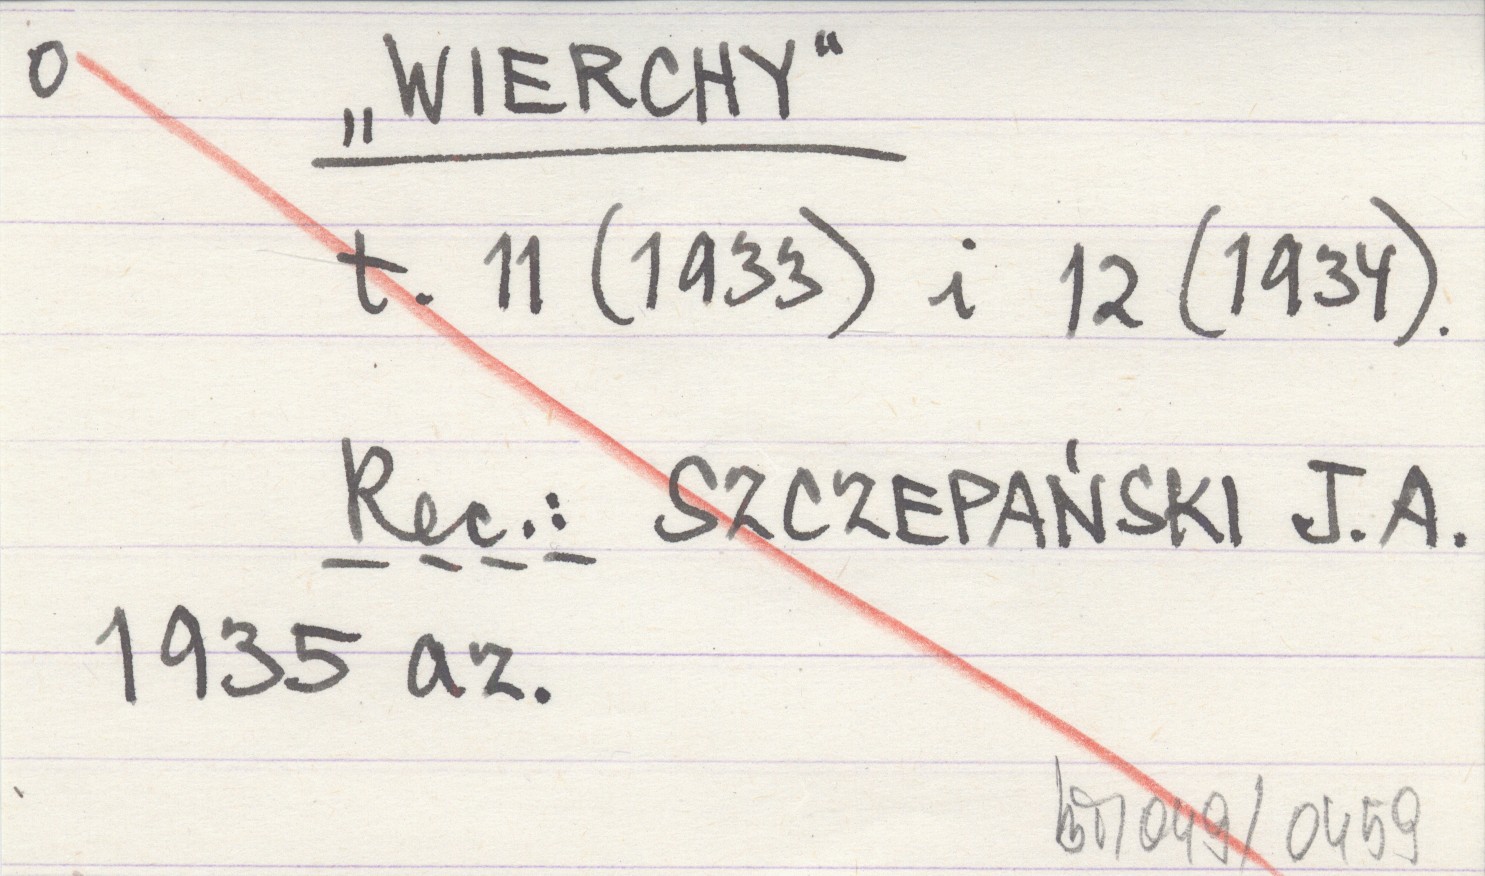 O „WIERCHY“
t. 11 (1933) i 12 (1934).
Rec.: SZCZEPAŃSKI J.A.
1935 az.
049/0459